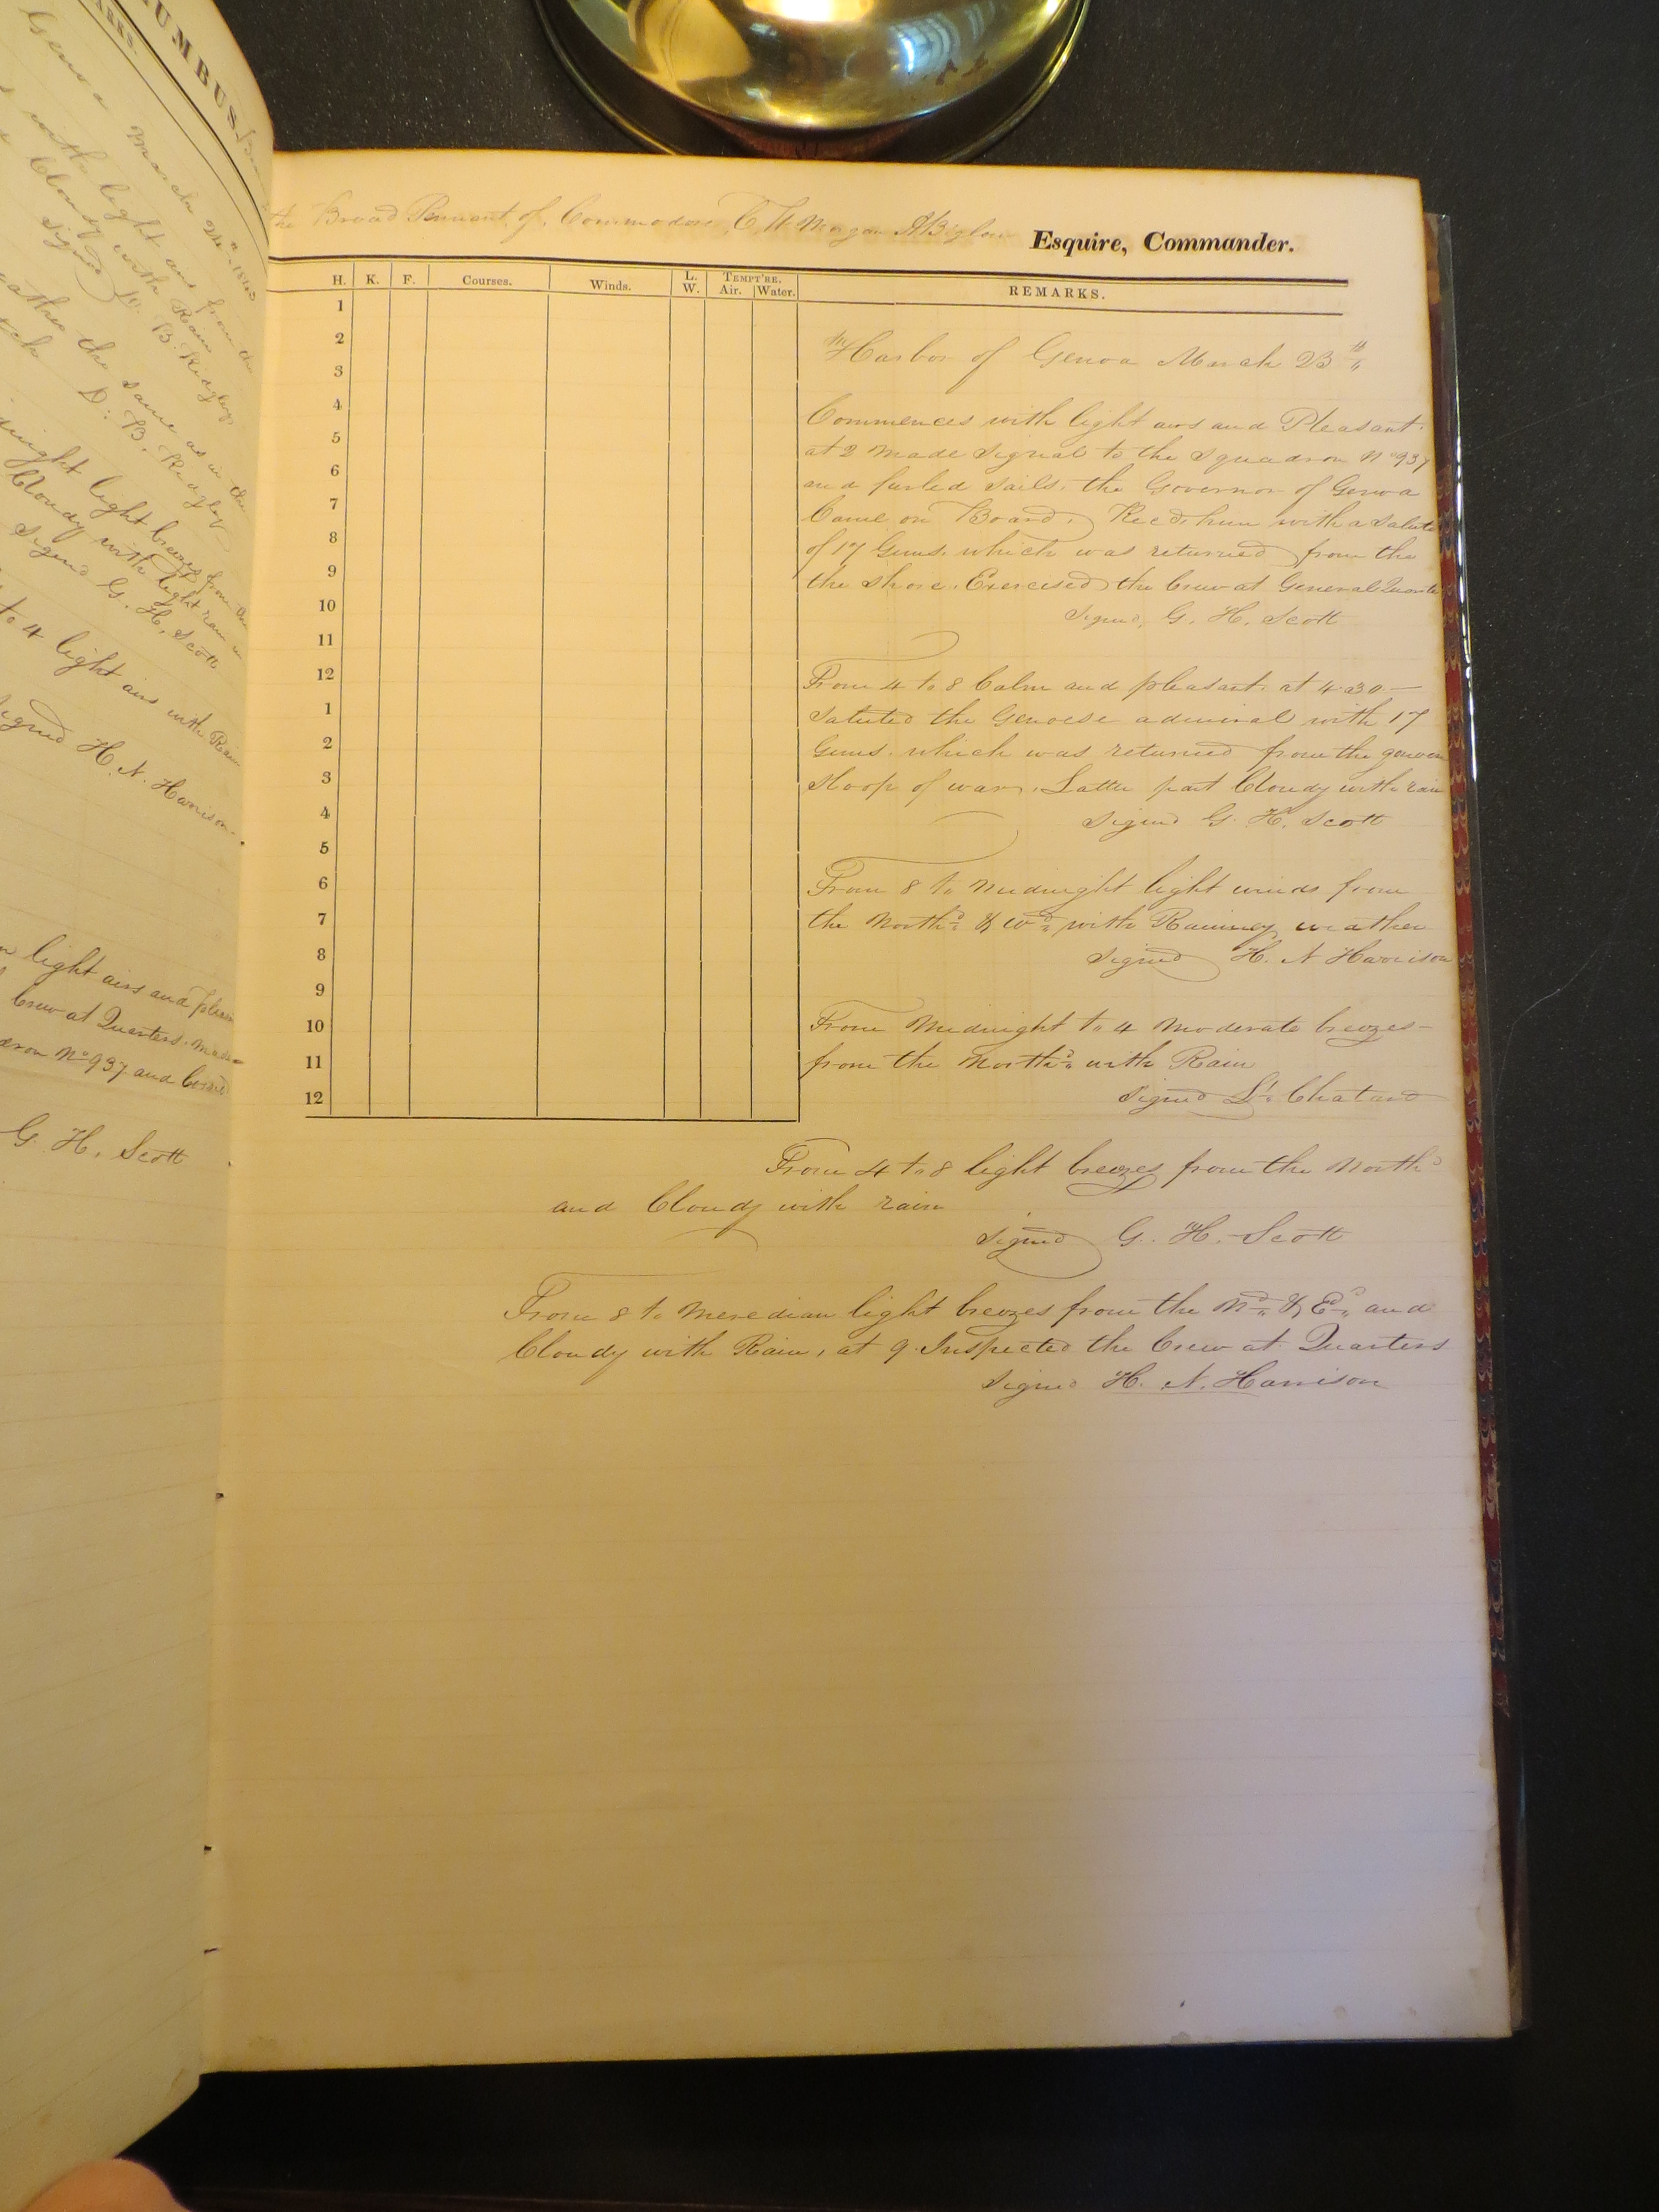 UMBUS,
ARKS.
Genoa March 22nd 1843
with light airs from the
Cloudy with Rain
Signed D. B. Ridgley
the same as in the
D. B. Ridgley
light breezes from
Cloudy with light rain
Signed G. H. Scott
to 4 light airs with Rain
Signed H. N. Harrison
light airs and pleas
Crew at Quarters. made
No 937 and
G. H. Scott
the Broad Pennant of Commodore C. W. Morgan A Bigelow Esquire, Commander.
H. K. F. Courses. Winds. L. W. TEMPT'RE. Air. Water. REMARKS.
1
2
3
4
5
6
7
8
9
10
11
12
1
2
3
4
5
6
7
8
9
10
11
12
Harbor of Genoa March 23"
Commences with light airs and Pleasant.
at 2 Made Signal to the Squadron No 937
and furled sails. the Governor of Genoa
Came on Board. Recd. him with a Salute
of 17 Guns. which was returned from the
the shore. Exercised the Crew at General Quarte
Signed, G. H. Scott
From 4 to 8 Calm and pleasant. at 4.30
Saluted the Genoese admiral with 17
Guns. which was returned from the
Sloop of war. Latter part Cloudy with rain
Signed G. H. Scott
From 8 to Midnight light winds from
the Northd & Wd with Rainney weather
Signed H. N Harrison
From Midnight to 4 Moderate breezes
from the Northd with Rain
Signed Lt. Chatard
From 4 to 8 light breezes from the Northd
and Cloudy with rain
Signed G. H. Scott
From 8 to Meredian light breezes from the Nd & Ed and
Cloudy with Rain, at 9. Inspected the Crew at Quarters
Signed H. N. Harrison